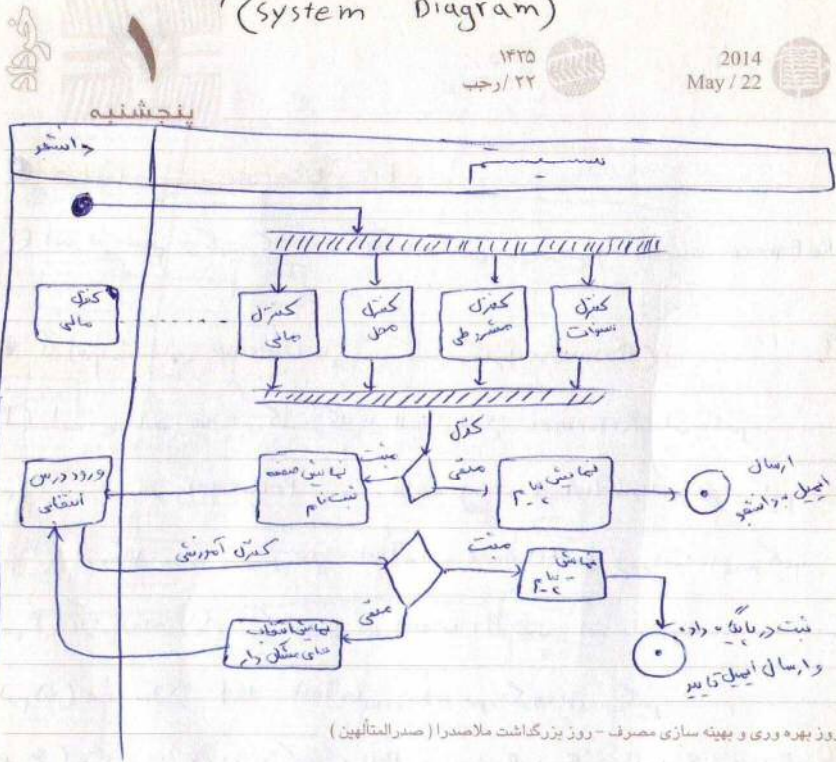 (System Diagram)
خرداد
۱
پنجشنبه
۱۴۳۵
۲۲ / رجب
2014
May / 22
دانشجو
سیستم
کنترل
مالی
کنترل
مالی
کنترل
محل
کنترل
مشروطی
کنترل
کنترل
مثبت
منفی
نمایش صفحه
ثبت نام
نمایش پیام
ارسال
ایمیل به دانشجو
ورود درس
انتخابی
کنترل آموزشی
مثبت
منفی
نمایش
پیام
نمایش انتخاب
های مشکل دار
ثبت در پایگاه داده
و ارسال ایمیل تایید
روز بهره وری و بهینه سازی مصرف - روز بزرگداشت ملاصدرا ( صدرالمتألهین )